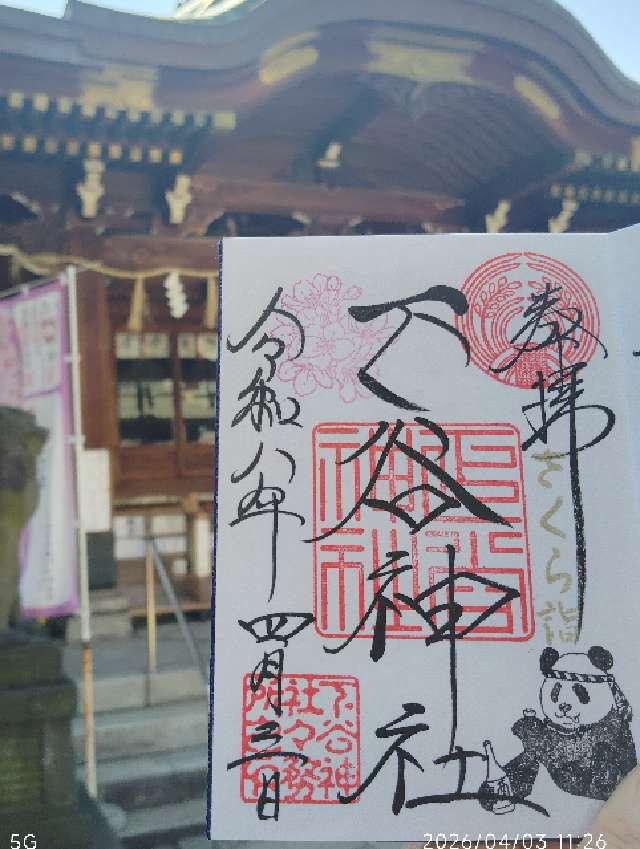 奉拝
さくら詣
下谷神社
令和八年
四月三日
下谷神
社々務
5G
2026/04/03 11:26